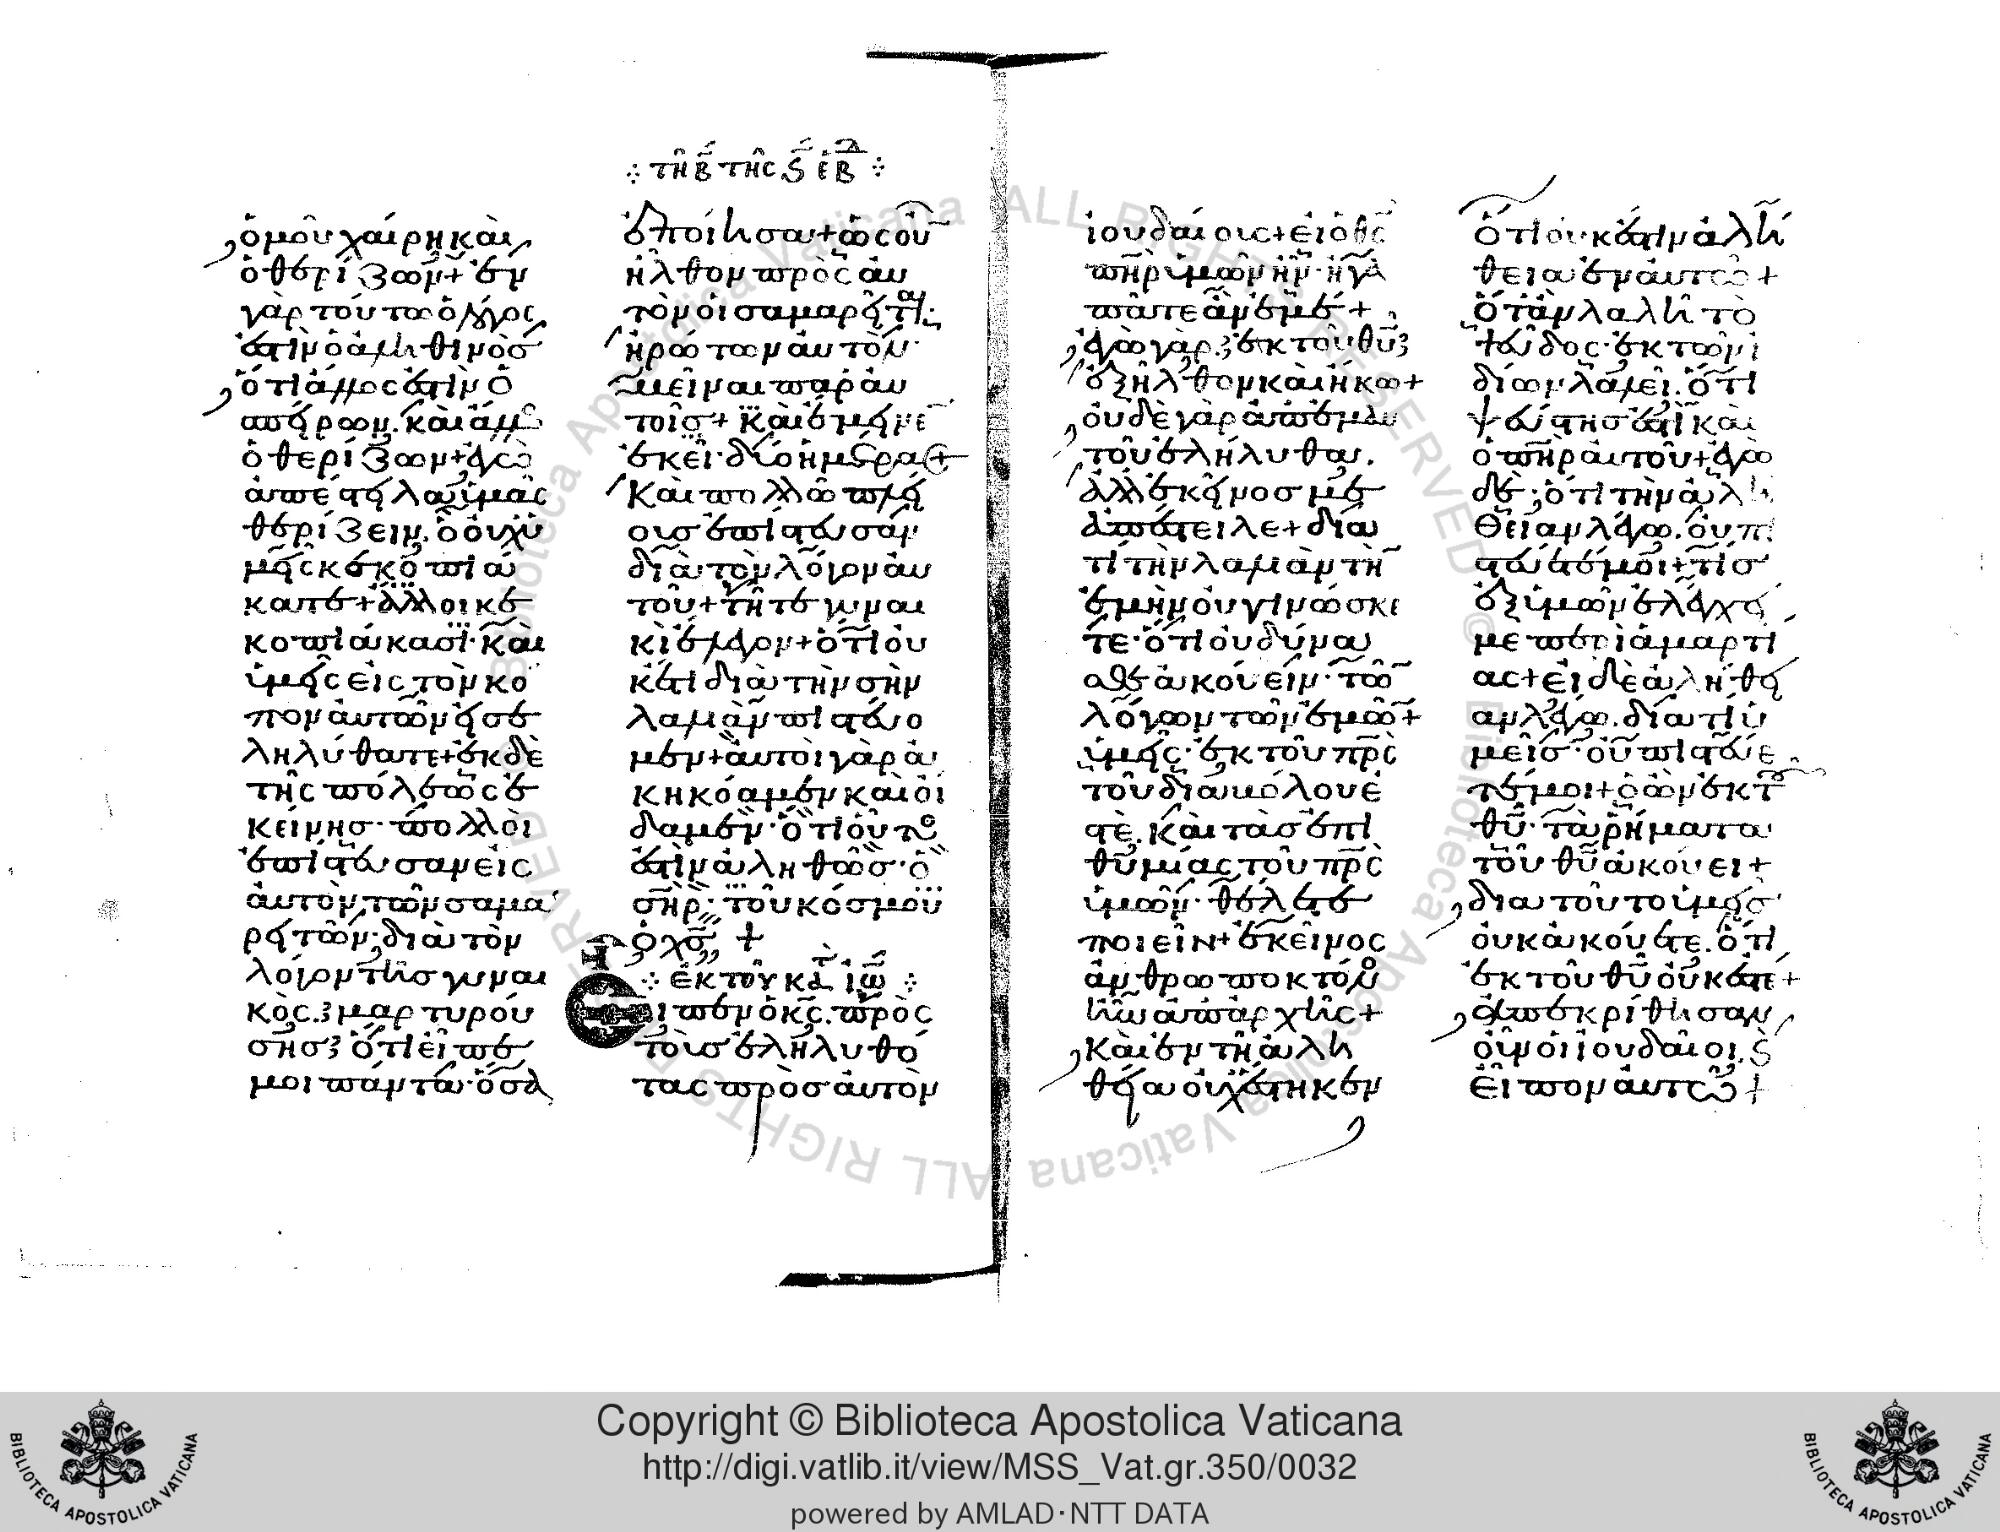 ⁘ τῆ β̄ τῆς ς̄ ἑβδ ⁘
ὁμοῦ χαίρη καὶ
ὁ θερίζων + ἐν
γὰρ τούτω ὁ λόγος
ἐστὶν ὁ ἀληθινὸσ
ὅτι ἄλλος ἐστὶν ὁ
σπείρων. καὶ ἄλλος
ὁ θερίζων + ἐγὼ
ἀπέστειλα ὑμᾶς
θερίζειν. ὃ οὐχ ὑ
μεῖς κεκοπιά
κατε + ἄλλοι κε
κοπιάκασι · καὶ
ὑμεῖς εἰς τὸν κό
πον αὐτῶν εἰσε
ληλύθατε + ἐκ δὲ
τῆς πόλεως ἐ
κείνησ · πολλοὶ
ἐπίστευσαν εἰς
αὐτὸν τῶν σαμα
ρειτῶν · διὰ τὸν
λόγον τῆσ γυναι
κὸς. μαρτυρού
σησ ὅτι εἶπέ
μοι πάντα · ὅσα
ἐποίησα + ὡς οὖν
ἦλθον πρὸς αὐ
τὸν οἱ σαμαρεῖται ·
ἠρώτων αὐτὸν ·
μεῖναι παρ αὐ
τοῖσ + καὶ ἔμεινε
ἐκεῖ · δύο ἡμέρας +
Καὶ πολλῶ πλεί
ουσ ἐπίστευσαν
διὰ τὸν λόγον αὐ
τοῦ + τῆ τε γυναι
κὶ ἔλεγον + ὅτι οὐ
κέτι διὰ τὴν σὴν
λαλιὰν πιστεύο
μεν + αὐτοὶ γὰρ ἀ
κηκόαμεν καὶ οἴ
δαμεν · ὅτι οὗτος
ἐστὶν ἀληθῶσ · ὁ
σηρ · τοῦ κόσμου
ὁ χσ +
⁘ ἐκ τοῦ κατ ἰω ⁘
Εἶπεν ὁ κς. πρὸς
τοὺσ ἐληλυθό
τας πρὸσ αὐτὸν
ἰουδαίουσ + εἰ ὁ θς
πηρ ὑμῶν ἦν · ἠγα
πᾶτε ἂν ἐμέ +
ἐγὼ γὰρ ἐκ τοῦ θυ
ἐξῆλθον καὶ ἥκω +
οὐδὲ γὰρ ἀπ ἐμαυ
τοῦ ἐλήλυθα.
ἀλλ ἐκεῖνοσ με
ἀπέστειλε + δια
τί τὴν λαλιὰν τὴν
ἐμὴν οὐ γινώσκε
τε · ὅτι οὐ δύνα
σθε ἀκούειν · τῶν
λόγων τῶν ἐμῶν +
ὑμεῖς · ἐκ τοῦ πρς
τοῦ διαβόλου ἐ
στὲ. καὶ τὰσ ἐπι
θυμίας τοῦ πρς
ὑμῶν · θέλετε
ποιεῖν + ἐκεῖνος
ἀνθρωποκτόνος
ἦν ἀπ ἀρχῆς +
Καὶ ἐν τῆ ἀλη
θεία οὐχ ἕστηκεν
ὅτι οὐκ ἔστιν ἀλή
θεια ἐν αὐτῶ +
ὅταν λαλῆ τὸ
ψεῦδος · ἐκ τῶν ἰ
δίων λαλεῖ. ὅτι
ψεύστησ ἐστὶ καὶ
ὁ πηρ αὐτοῦ + ἐγὼ
δὲ · ὅτι τὴν ἀλή
θειαν λέγω. οὐ πι
στεύετέ μοι + τίσ
ἐξ ὑμῶν ἐλέγχει
με περὶ ἁμαρτί
ας + εἰ δὲ ἀλήθει
αν λέγω. διατί ὑ
μεῖσ · οὐ πιστεύε
τέ μοι + ὁ ὢν ἐκ τοῦ
θυ · τὰ ῥήματα
τοῦ θυ ἀκούει +
διατοῦτο ὑμεῖσ
οὐκ ἀκούετε. ὅτι
ἐκ τοῦ θυ οὐκ ἐστέ +
ἀπεκρίθησαν
οὖν οἱ ἰουδαῖοι. καὶ
εἶπον αὐτῶ +
Copyright © Biblioteca Apostolica Vaticana
http://digi.vatlib.it/view/MSS_Vat.gr.350/0032
powered by AMLAD·NTT DATA
BIBLIOTECA APOSTOLICA VATICANA
BIBLIOTECA APOSTOLICA VATICANA
Biblioteca Apostolica Vaticana ALL RIGHTS RESERVED ©
Biblioteca Apostolica Vaticana ALL RIGHTS RESERVED ©